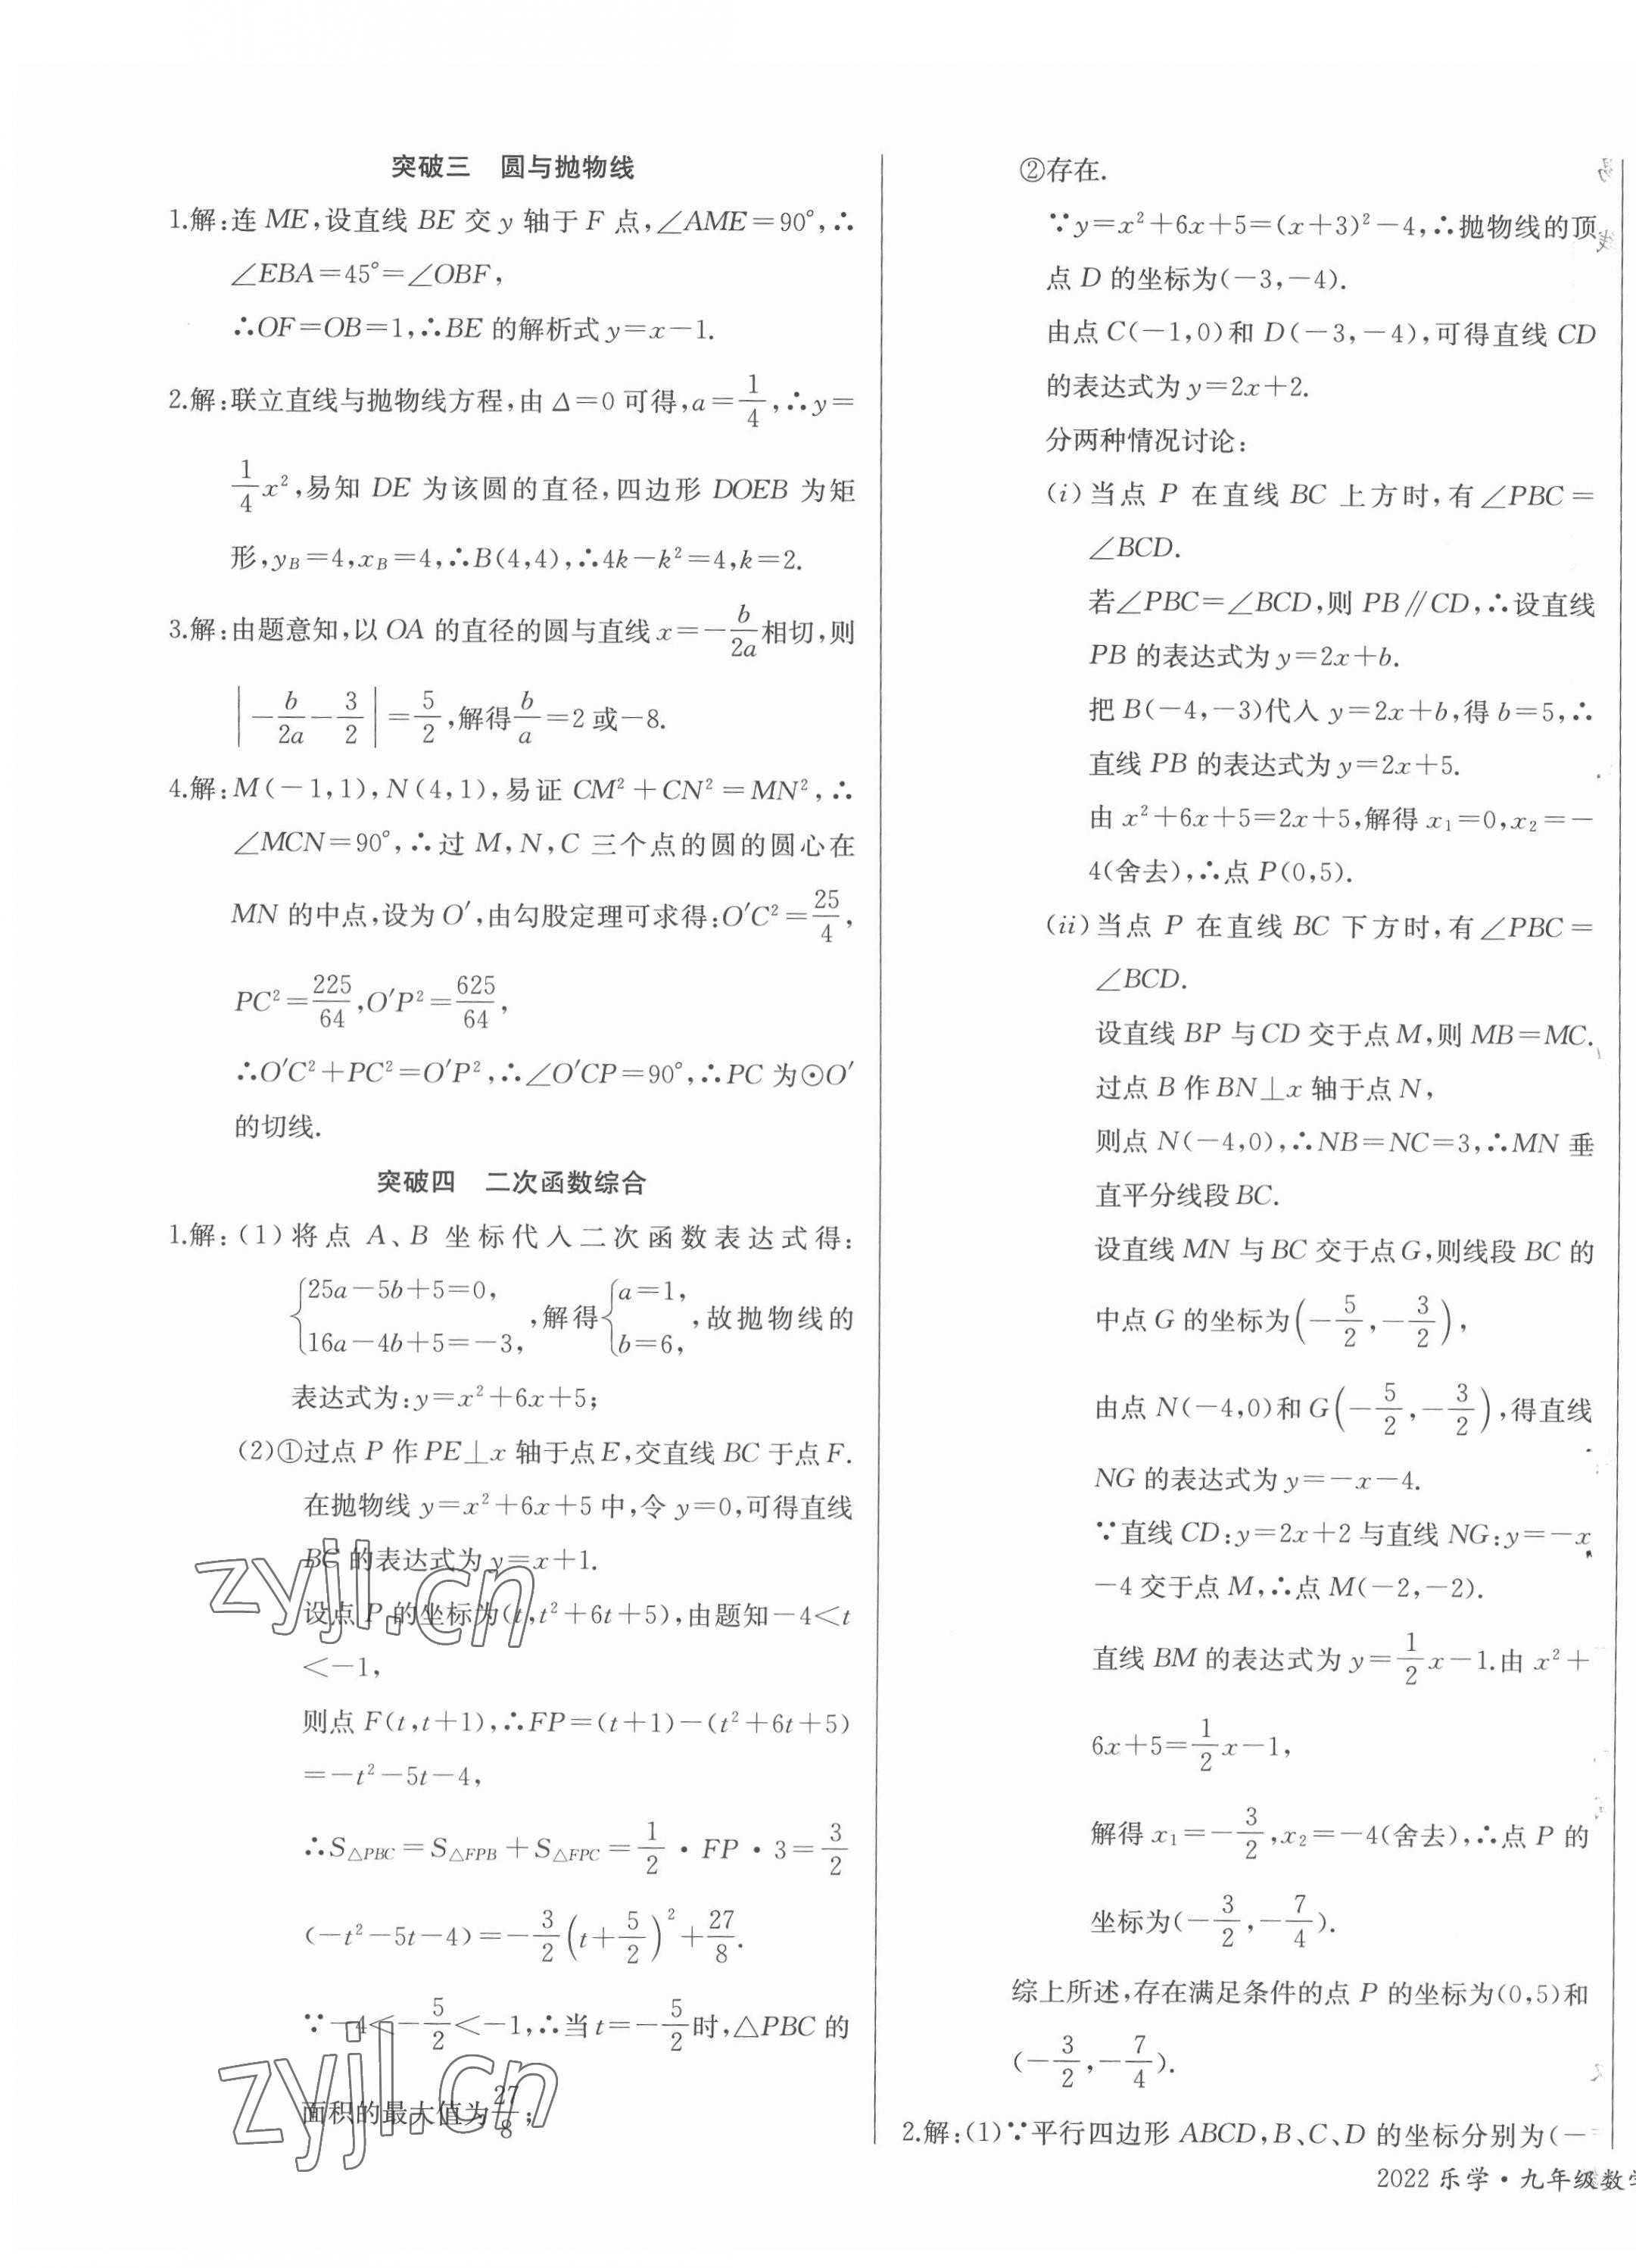 突破三 圆与抛物线
1.解:连 ME,设直线 BE 交 y 轴于 F 点,∠AME=90°,∴
∠EBA=45°=∠OBF,
∴OF=OB=1,∴BE 的解析式 y=x-1.
2.解:联立直线与抛物线方程,由 Δ=0 可得,a=1/4,∴y=
1/4x²,易知 DE 为该圆的直径,四边形 DOEB 为矩
形,y_B=4,x_B=4,∴B(4,4),∴4k-k²=4,k=2.
3.解:由题意知,以 OA 的直径的圆与直线 x=-b/2a相切,则
|-b/2a-3/2|=5/2,解得b/a=2 或-8.
4.解:M(-1,1),N(4,1),易证 CM²+CN²=MN²,∴
∠MCN=90°,∴过 M,N,C 三个点的圆的圆心在
MN 的中点,设为 O′,由勾股定理可求得:O′C²=25/4,
PC²=225/64,O′P²=625/64,
∴O′C²+PC²=O′P²,∴∠O′CP=90°,∴PC 为⊙O′
的切线.
突破四 二次函数综合
1.解:(1)将点 A、B 坐标代入二次函数表达式得:
{25a-5b+5=0, 16a-4b+5=-3, ,解得{a=1, b=6, ,故抛物线的
表达式为:y=x²+6x+5;
(2)①过点 P 作 PE⊥x 轴于点 E,交直线 BC 于点 F.
在抛物线 y=x²+6x+5 中,令 y=0,可得直线
BC 的表达式为 y=x+1.
设点 P 的坐标为(t,t²+6t+5),由题知-4<t
<-1,
则点 F(t,t+1),∴FP=(t+1)-(t²+6t+5)
=-t²-5t-4,
∴S△PBC=S△FPB+S△FPC=1/2·FP·3=3/2
(-t²-5t-4)=-3/2(t+5/2)²+27/8.
∵-4<-5/2<-1,∴当 t=-5/2时,△PBC 的
面积的最大值为27/8;
②存在.
∵y=x²+6x+5=(x+3)²-4,∴抛物线的顶
点 D 的坐标为(-3,-4).
由点 C(-1,0)和 D(-3,-4),可得直线 CD
的表达式为 y=2x+2.
分两种情况讨论:
(i)当点 P 在直线 BC 上方时,有∠PBC=
∠BCD.
若∠PBC=∠BCD,则 PB∥CD,∴设直线
PB 的表达式为 y=2x+b.
把 B(-4,-3)代入 y=2x+b,得 b=5,∴
直线 PB 的表达式为 y=2x+5.
由 x²+6x+5=2x+5,解得 x₁=0,x₂=-
4(舍去),∴点 P(0,5).
(ii)当点 P 在直线 BC 下方时,有∠PBC=
∠BCD.
设直线 BP 与 CD 交于点 M,则 MB=MC.
过点 B 作 BN⊥x 轴于点 N,
则点 N(-4,0),∴NB=NC=3,∴MN 垂
直平分线段 BC.
设直线 MN 与 BC 交于点 G,则线段 BC 的
中点 G 的坐标为(-5/2,-3/2),
由点 N(-4,0)和 G(-5/2,-3/2),得直线
NG 的表达式为 y=-x-4.
∵直线 CD:y=2x+2 与直线 NG:y=-x
-4 交于点 M,∴点 M(-2,-2).
直线 BM 的表达式为 y=1/2x-1.由 x²+
6x+5=1/2x-1,
解得 x₁=-3/2,x₂=-4(舍去),∴点 P 的
坐标为(-3/2,-7/4).
综上所述,存在满足条件的点 P 的坐标为(0,5)和
(-3/2,-7/4).
2.解:(1)∵平行四边形 ABCD,B、C、D 的坐标分别为(-
2022 乐学·九年级数学
zyjl.cn
zyjl.cn